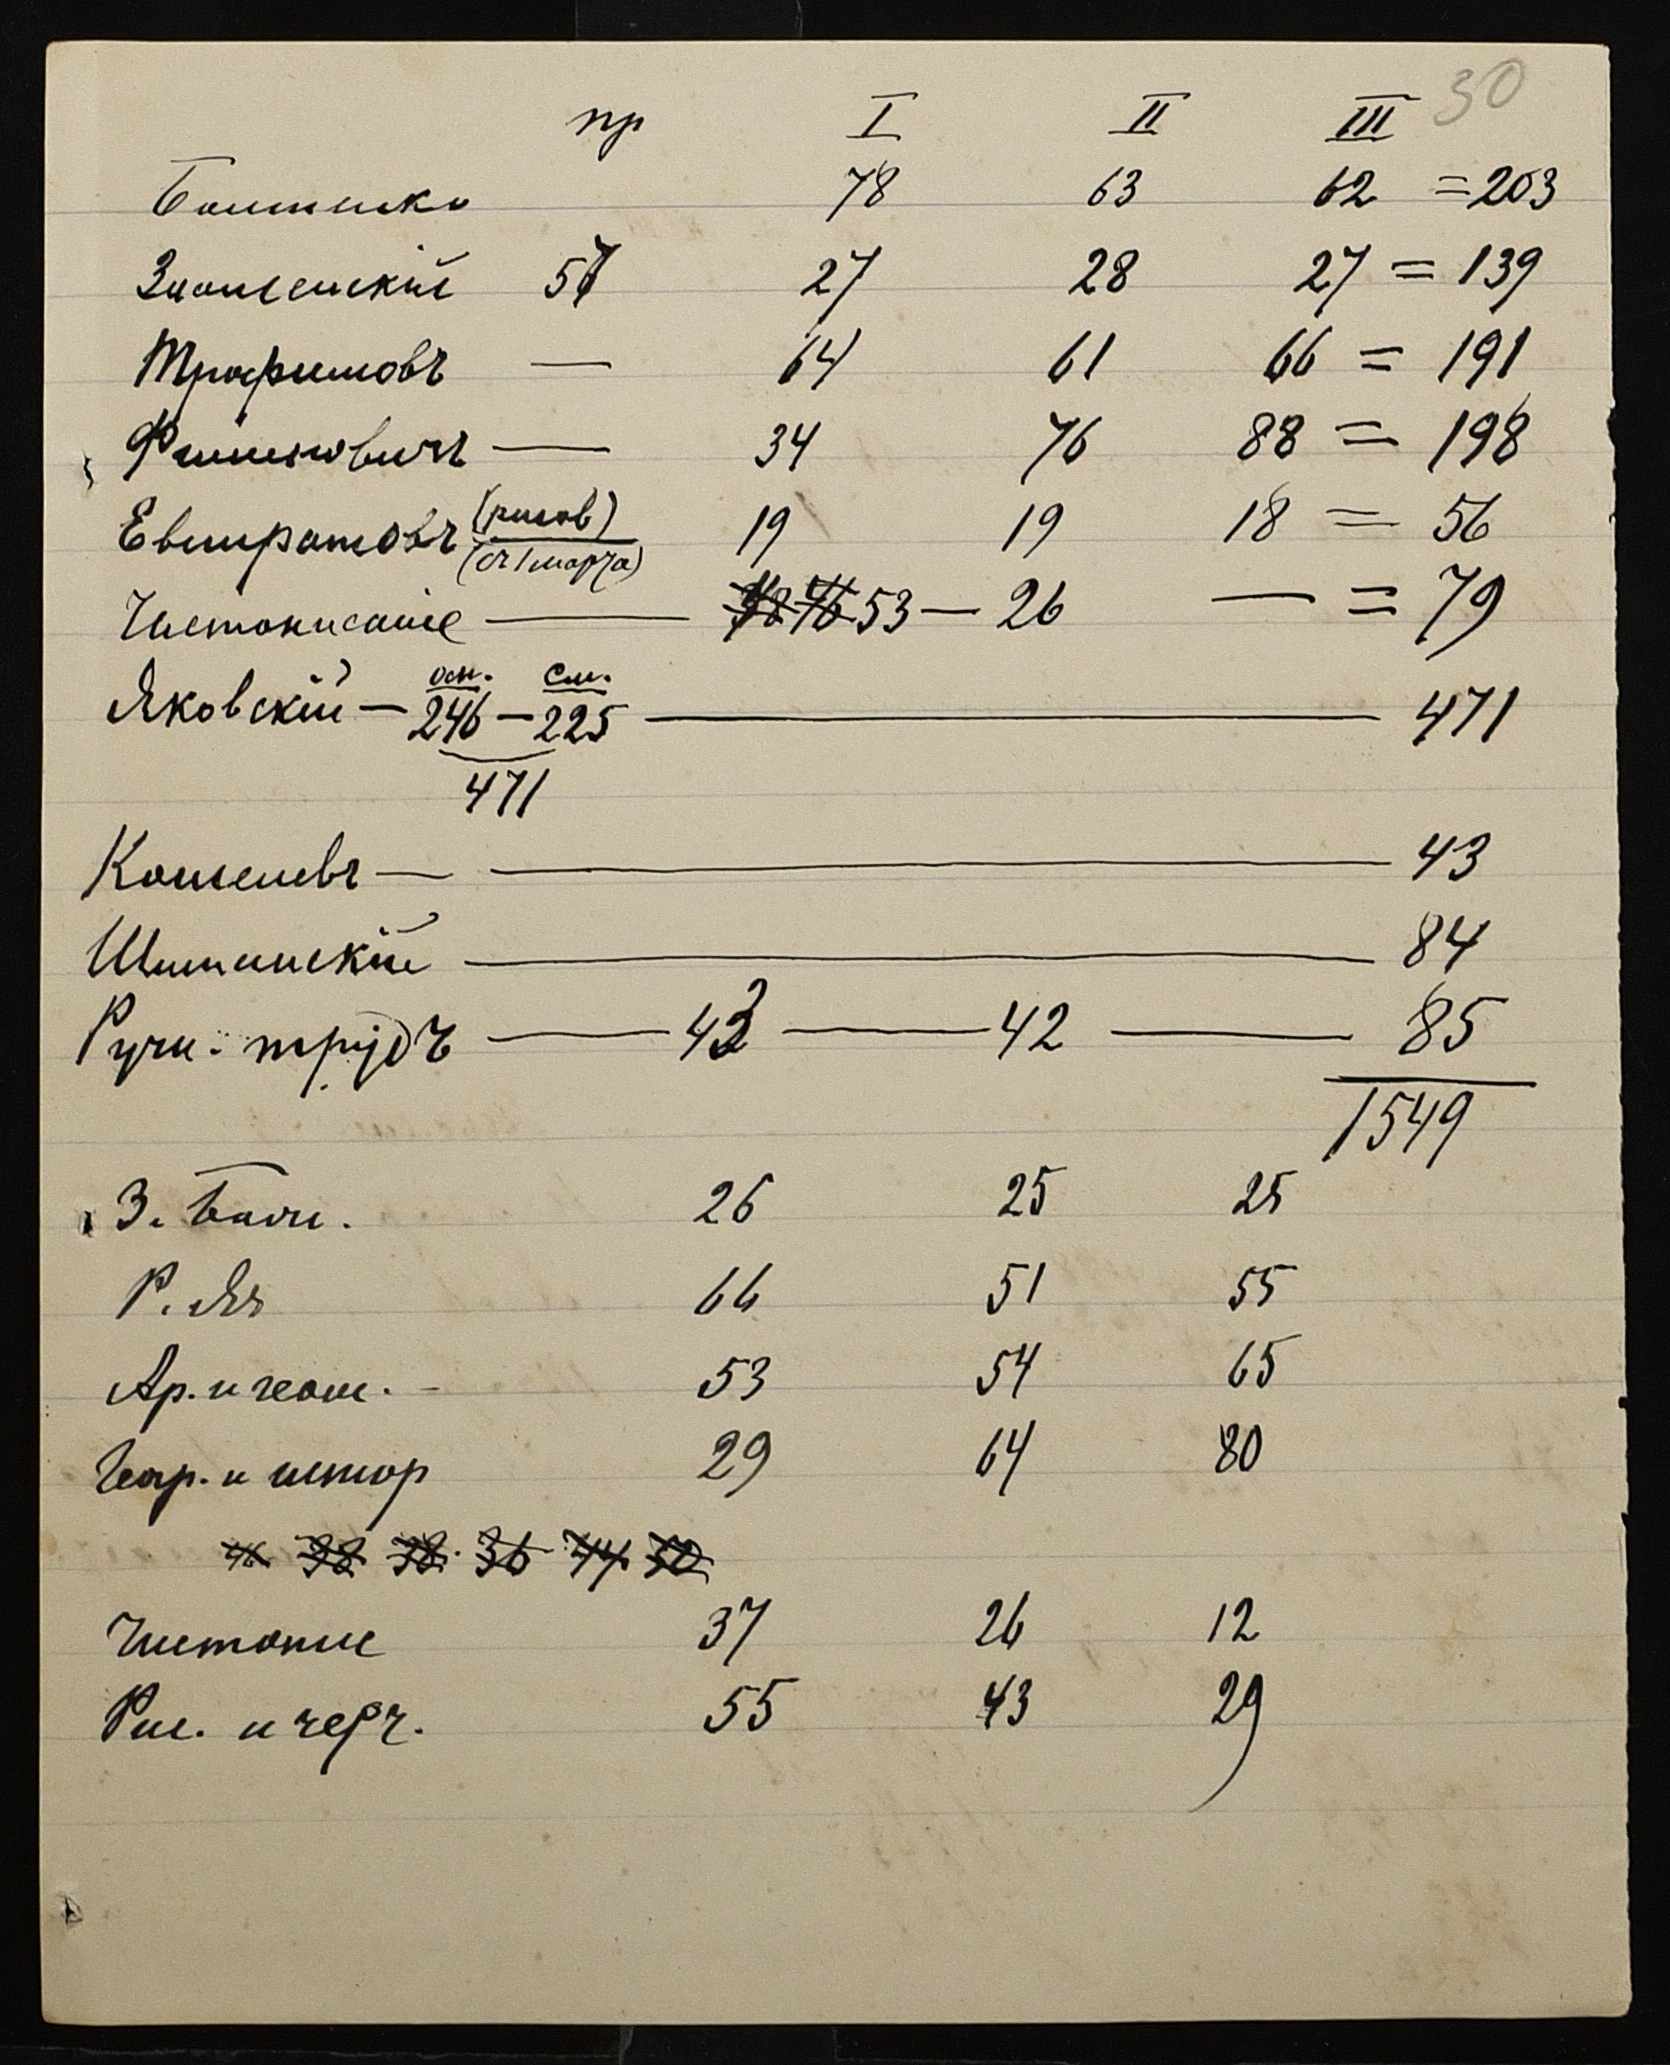 30
пр I II III
78 63 62 = 203
57 27 28 27 = 139
Трофимовъ — 64 61 66 = 191
— 34 76 88 = 198
Евстратовъ (рисов) 19 19 18 = 56
(съ 1 марта)
Чистописаніе — 53 — 26 — = 79
осн. см.
Яковскій — 246 — 225 — 471
471
Кошелевъ — — 43
84
Ручн. трудъ — 43 — 42 — 85
1549
З. Бож. 26 25 25
Р. Яз 66 51 55
Ар. и геом. - 53 54 65
Геогр. и истор 29 64 80
46 38 38. 36 44 50
Чистопис 37 26 12
Рис. и черч. 55 43 29